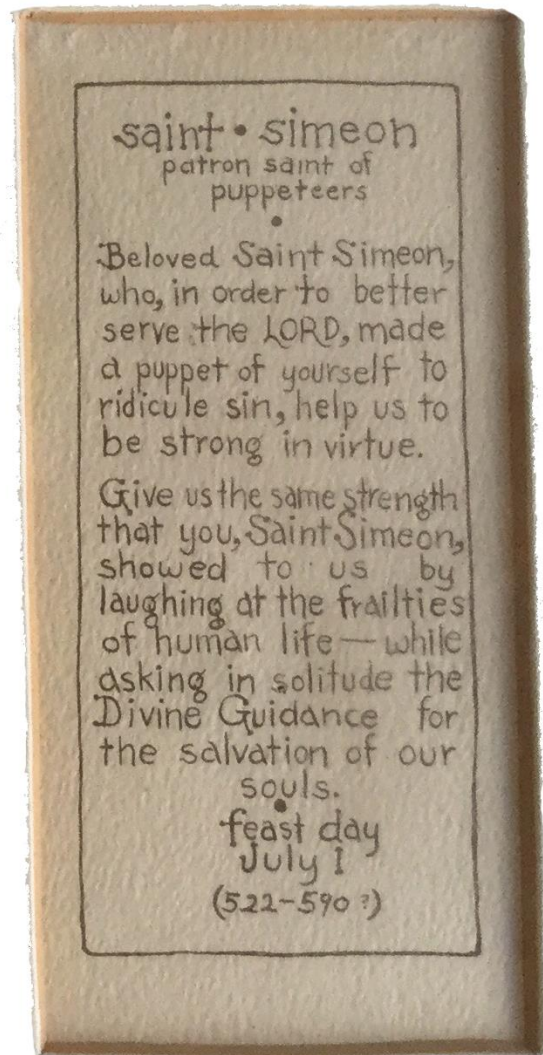 saint • simeon
patron saint of
puppeteers
•
Beloved Saint Simeon,
who, in order to better
serve the LORD, made
a puppet of yourself to
ridicule sin, help us to
be strong in virtue.
Give us the same strength
that you, Saint Simeon,
showed to us by
laughing at the frailties
of human life — while
asking in solitude the
Divine Guidance for
the salvation of our
souls.
•
feast day
July 1
(522-590 ?)